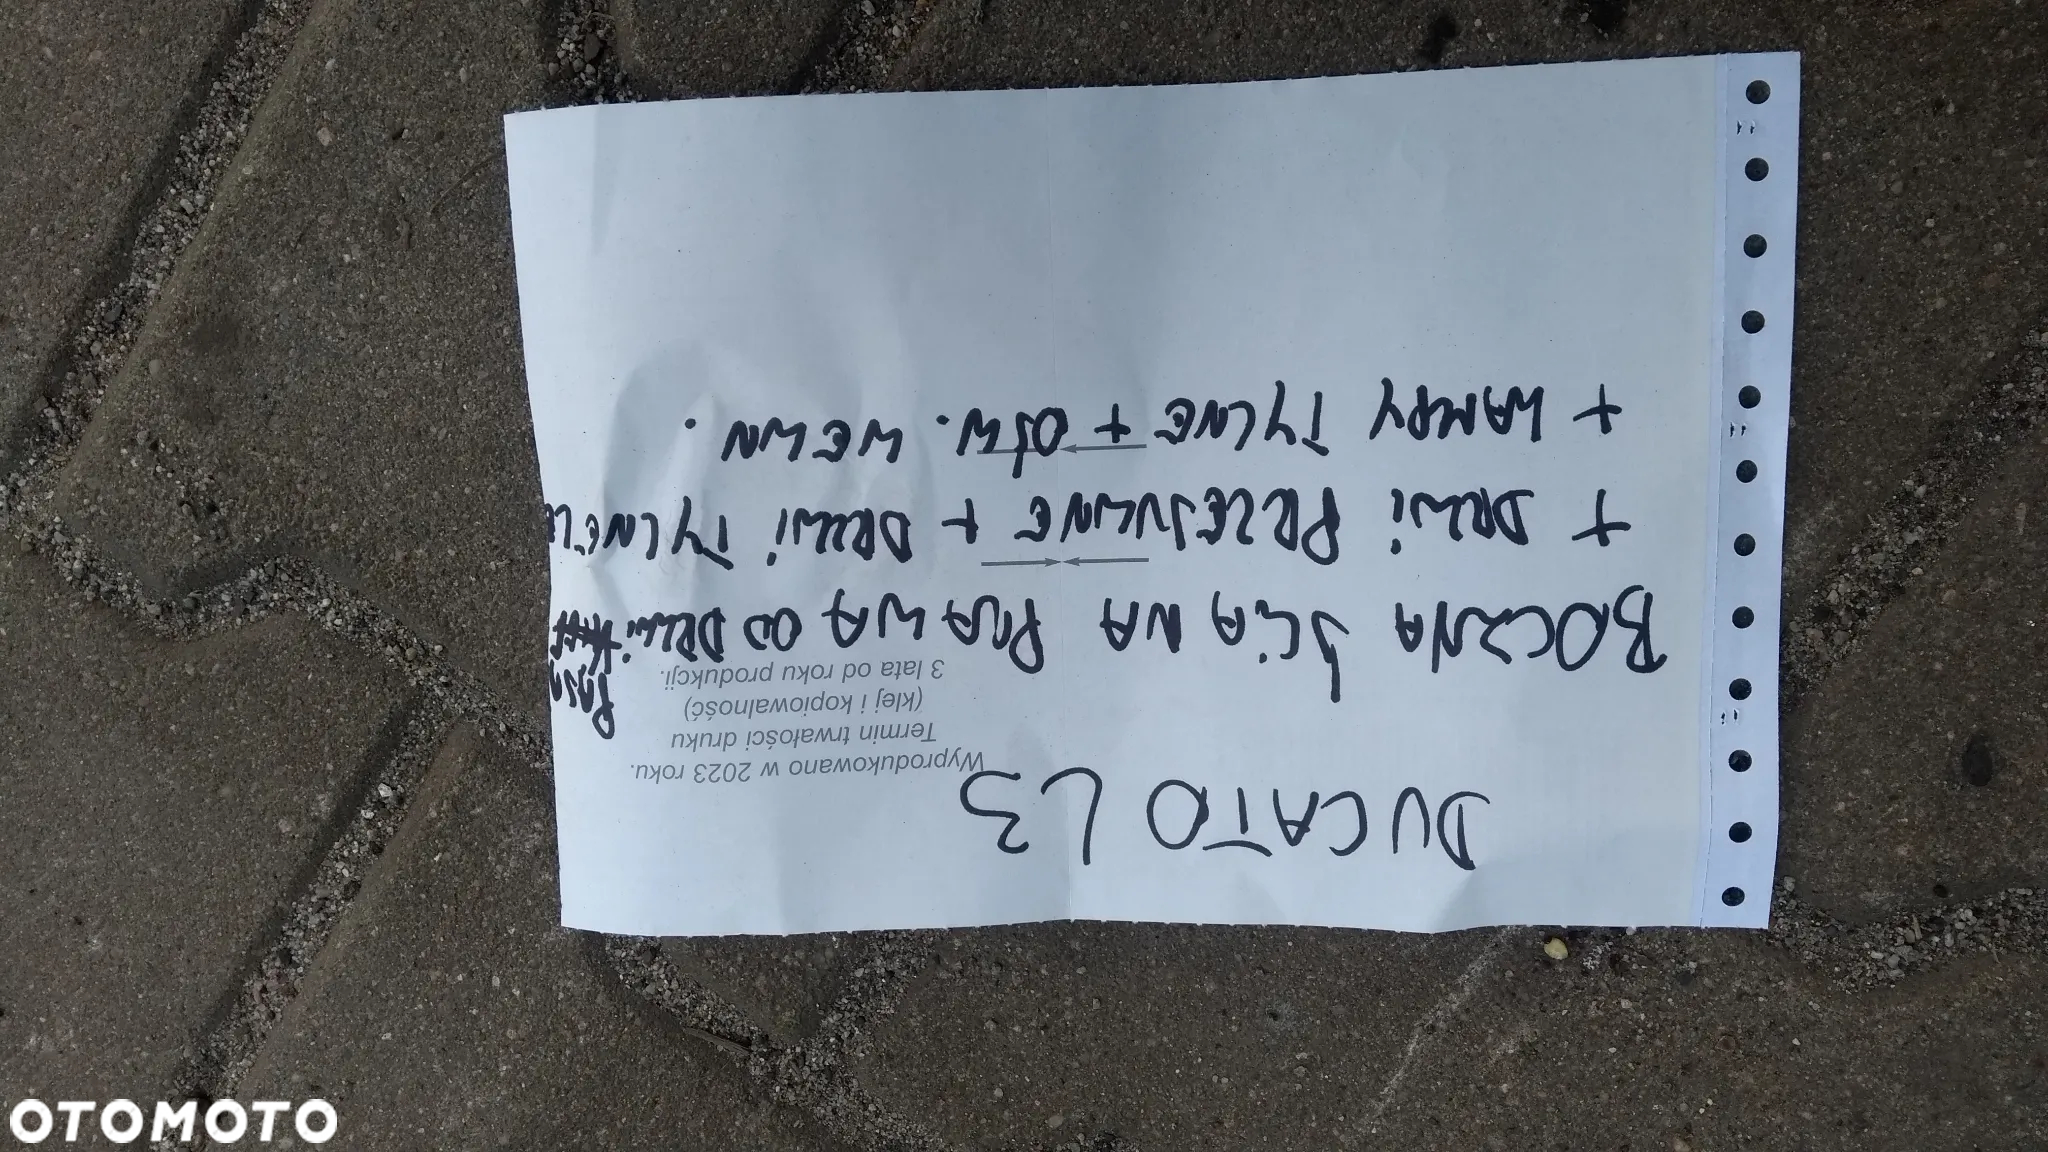 DUCATO L3
Wyprodukowano w 2023 roku.
Termin trwałości druku
(klej i kopiowalność)
3 lata od roku produkcji.
BOCZNA ŚCIANA PRAWA OD DRZWI
+ DRZWI PRZESUWNE + DRZWI TYLNE
+ LAMPY TYLNE + OŚW. WEWN.
OTOMOTO